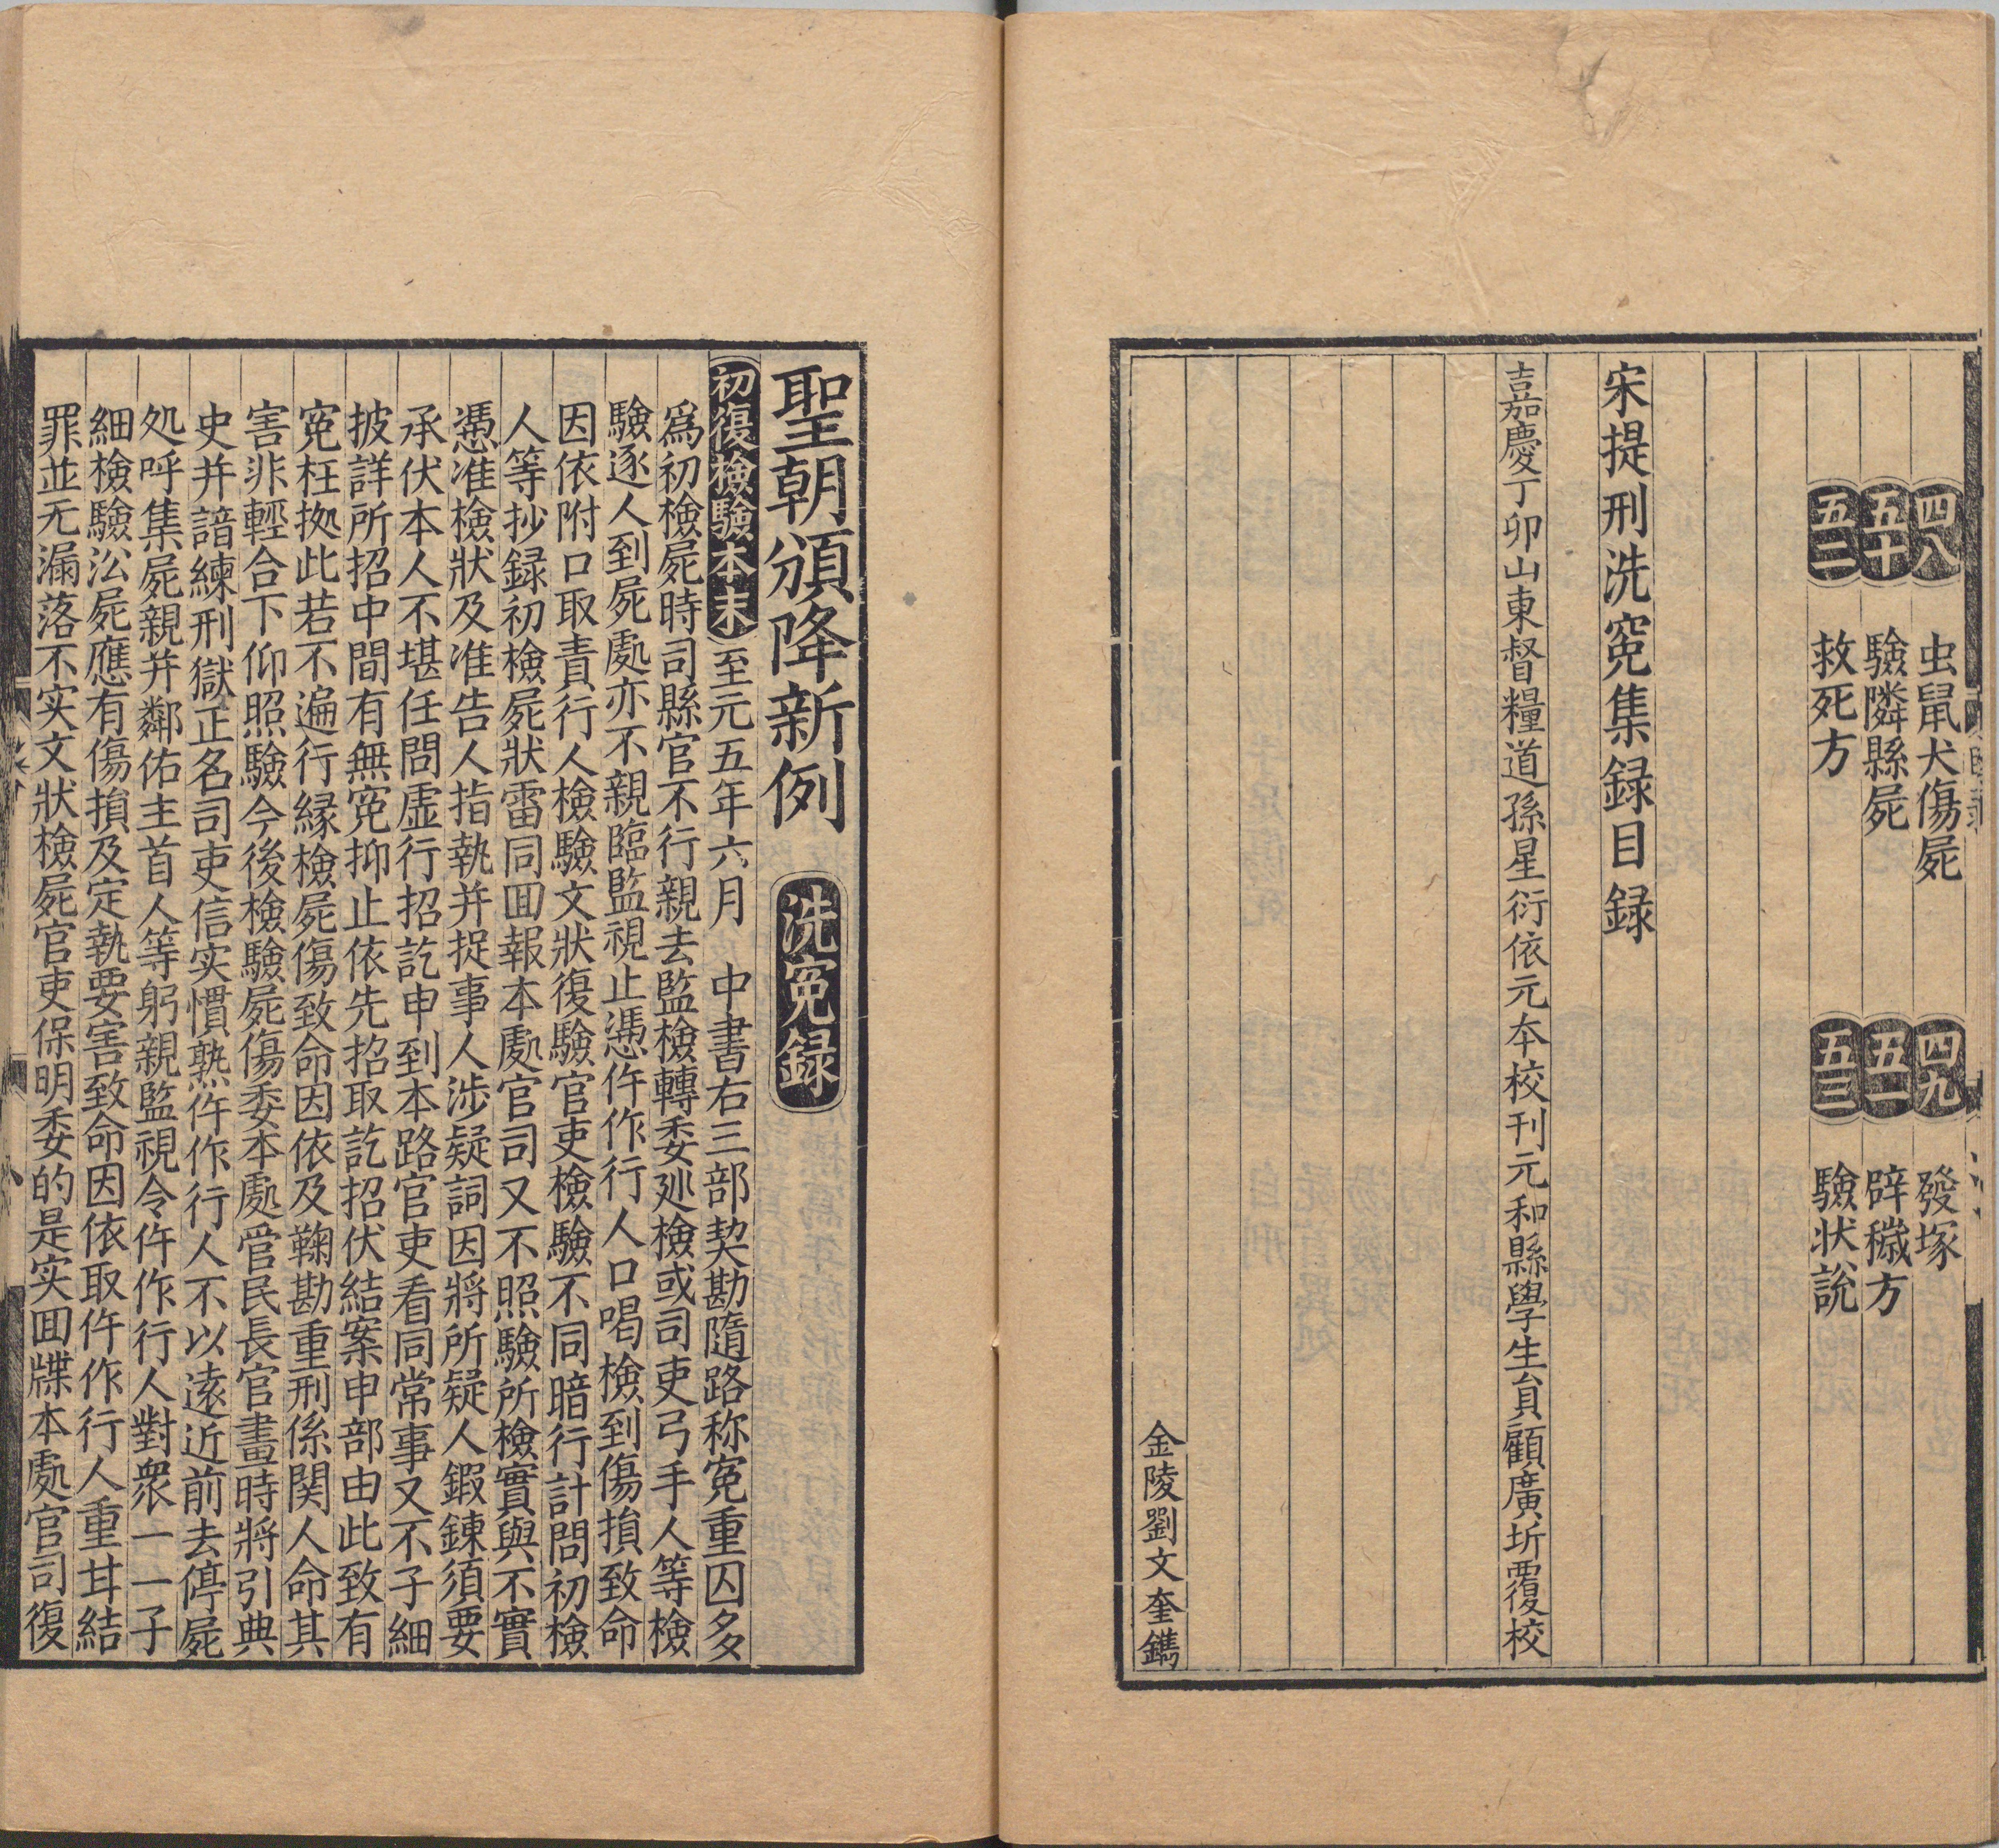 四八 虫鼠犬傷屍 四九 發塚
五十 驗隣縣屍 五一 辟穢方
五二 救死方 五三 驗状說
宋提刑洗寃集録目録
嘉慶丁卯山東督糧道孫星衍依元夲校刊元和縣學生員顧廣圻覆校
金陵劉文奎鐫
聖朝頒降新例 洗寃録
初復檢驗本末 至元五年六月 中書右三部契勘隨路称寃重囚多
爲初檢屍時司縣官不行親去監檢轉委廵檢或司吏弓手人等檢
驗逐人到屍處亦不親臨監視止憑仵作行人口喝檢到傷損致命
因依附口取責行人檢驗文狀復驗官吏檢驗不同暗行計問初檢
人等抄録初檢屍狀雷同囬報本處官司又不照驗所檢實與不實
憑准檢狀及准告人指執并捉事人涉疑詞因將所疑人鍜鍊須要
承伏本人不堪任問虛行招訖申到本路官吏看同常事又不子細
披詳所招中間有無寃抑止依先招取訖招伏結案申部由此致有
寃枉拠此若不遍行縁檢屍傷致命因依及鞠勘重刑係関人命其
害非輕合下仰照驗今後檢驗屍傷委本處管民長官畫時將引典
史并諳練刑獄正名司吏信实慣熟仵作行人不以逺近前去停屍
处呼集屍親并鄰佑主首人等躬親監視令仵作行人對衆一一子
細檢驗㳂屍應有傷損及定執要害致命因依取仵作行人重甘結
罪並无漏落不实文狀檢屍官吏保明委的是实囬牒本處官司復